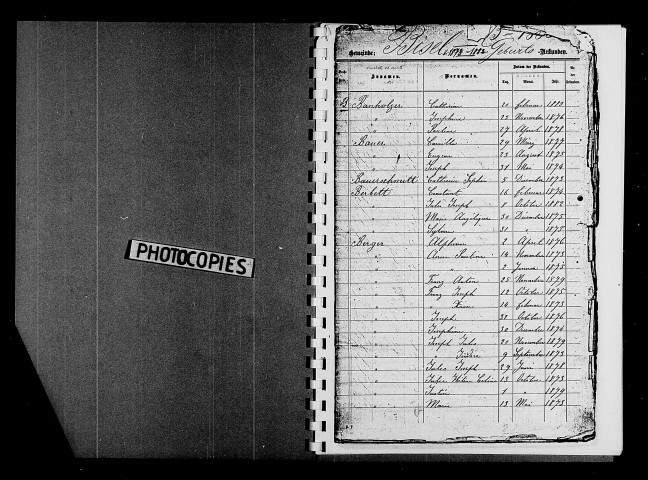 PHOTOCOPIES
Gemeinde: Bisel 1873-1882 Geburts-Urkunden.
Datum der Urkunden.
Zunamen. Vornamen. Tag. Monat. Jahr.
B Banholzer Catherina 20 Februar 1880
" Josephine 23 November 1876
" Pauline 27 April 1878
Bauer Camille 29 März 1877
" Eugen 23 August 1875
" Joseph 31 Mai 1874
Bauerschmitt Catherine Sophie 5 December 1873
Berbett Constant 16 Februar 1874
" Jules Joseph 8 October 1882
" Marie Angélique 30 December 1875
" 31 " 1875
Berger Alphons 2 April 1876
" Anna Pauline 14 November 1873
" " 2 Januar 1875
" Franz Anton 25 November 1879
" Franz Joseph 12 October 1875
" " Xaver 14 Februar 1873
" Joseph 31 October 1876
" Josephine 30 December 1874
" Joseph Jules 20 November 1879
" " 9 September 1873
" Jules Joseph 29 Juni 1878
" Hélène 13 October 1873
" Justin 1 " 1879
" Marie 13 Mai 1873